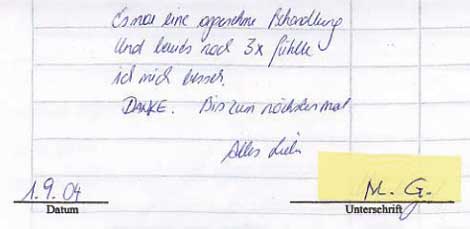 Es war eine angenehme Behandlung
Und bereits nach 3x fühle
ich mich besser.
DANKE. Bis zum nächsten mal
Alles Liebe
1.9.04 M. G.
Datum Unterschrift